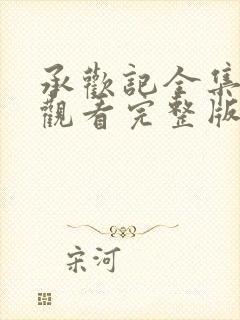 承歡記全集
觀看完整版
宋河